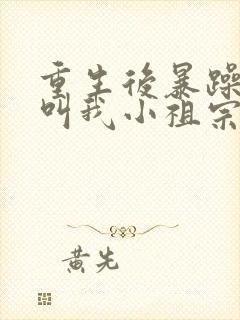 重生後暴躁
叫我小祖宗
黃先